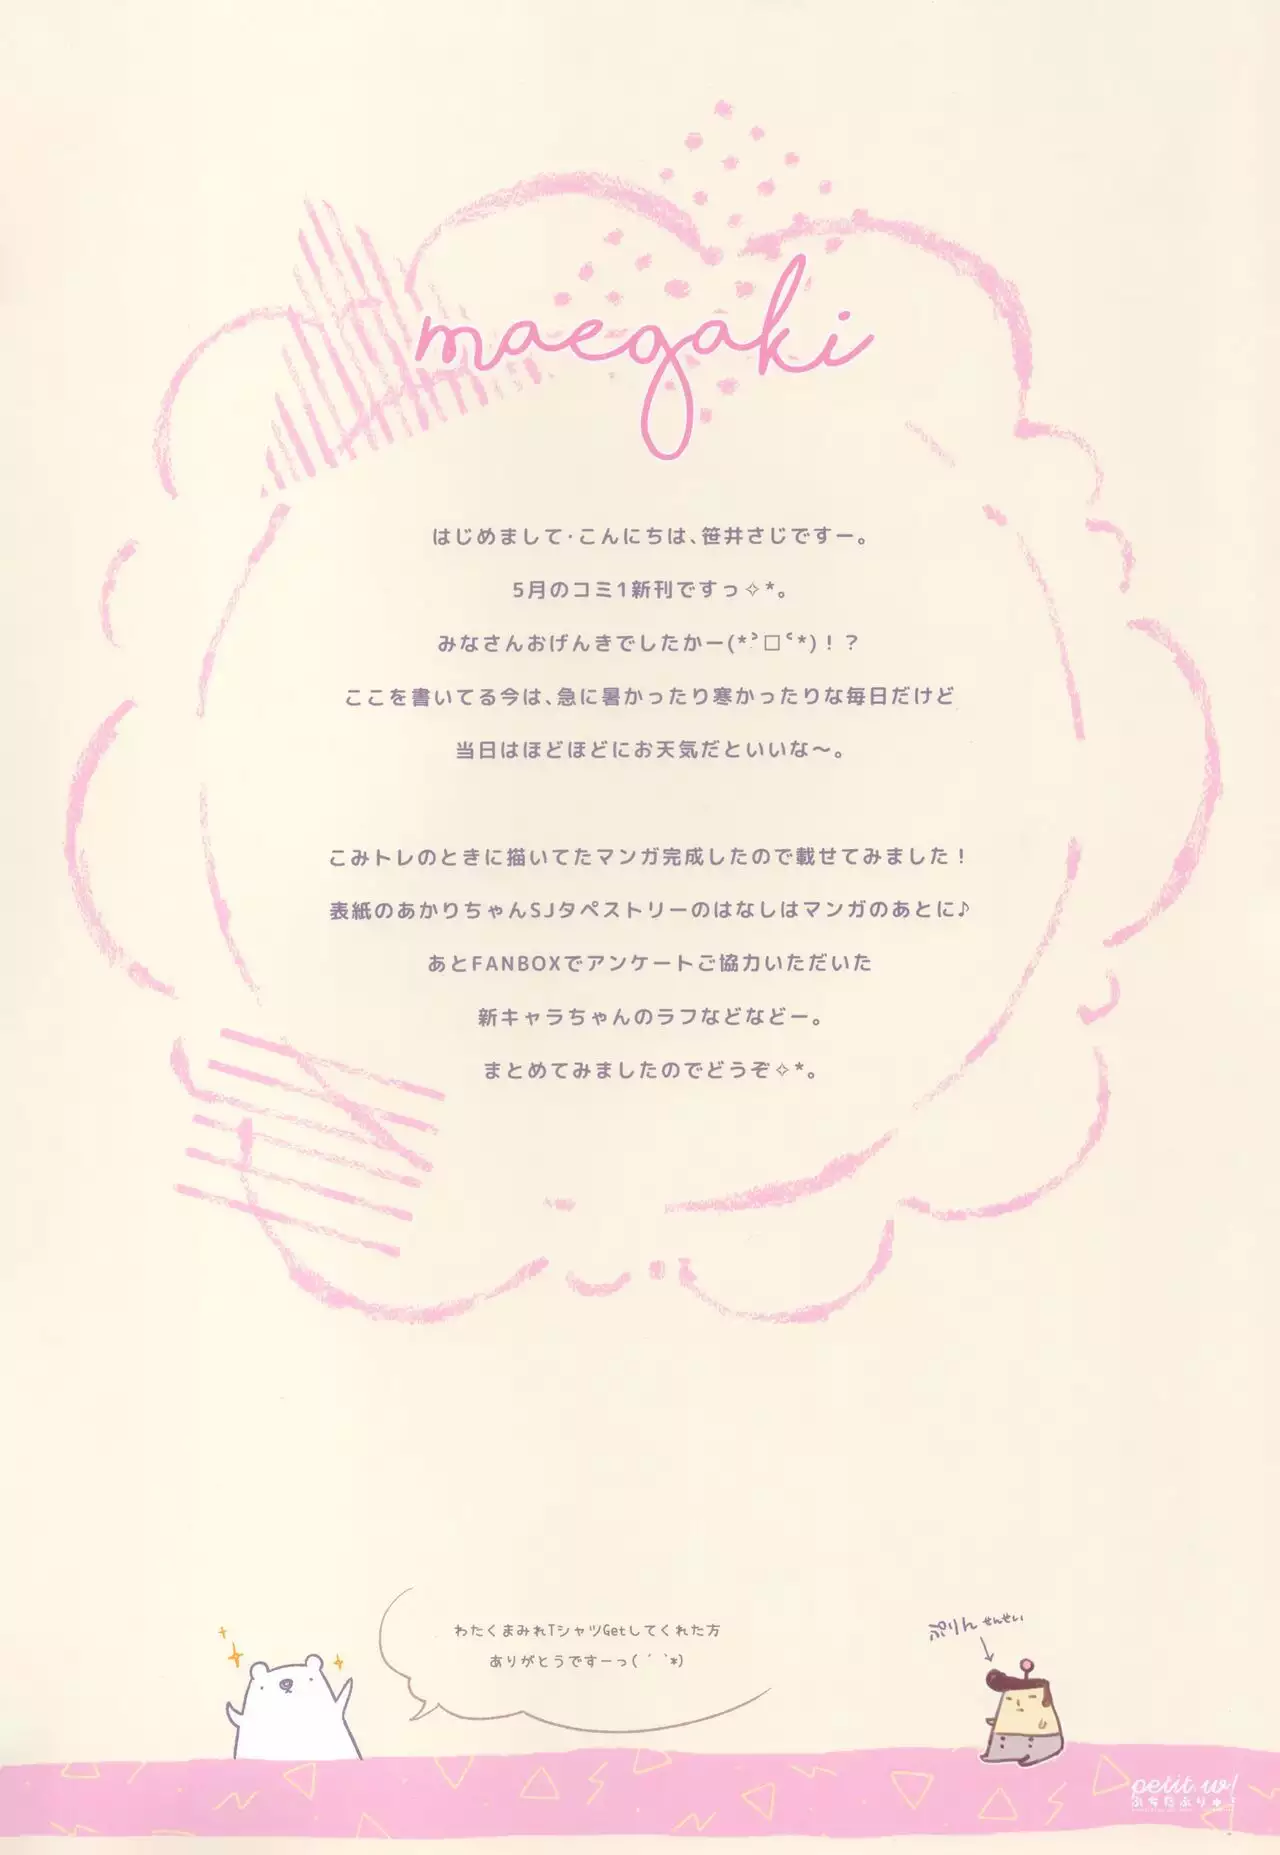 maegaki
はじめまして・こんにちは、笹井さじですー。
5月のコミ1新刊ですっ✧*。
みなさんおげんきでしたかー(*ˀ□ˁ*)！？
ここを書いてる今は、急に暑かったり寒かったりな毎日だけど
当日はほどほどにお天気だといいな〜。
こみトレのときに描いてたマンガ完成したので載せてみました！
表紙のあかりちゃんSJタペストリーのはなしはマンガのあとに♪
あとFANBOXでアンケートご協力いただいた
新キャラちゃんのラフなどなどー。
まとめてみましたのでどうぞ✧*。
わたくまみれTシャツGetしてくれた方
ありがとうですーっ( ´ `*)
ぷりん せんせい
petit.w!
ぷちだぶりゅ!